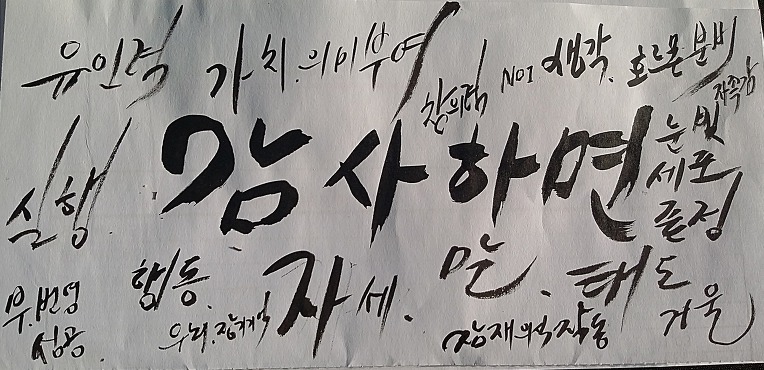 유인력 가치.의미부여 창의력 NO1 생각. 호르몬 분비
자족감
실행. 감사하면 눈빛
세포
표정
행동. 자세. 말. 태도
부.번영 우뇌.장기기억 잠재의식 작동 거울
성공.